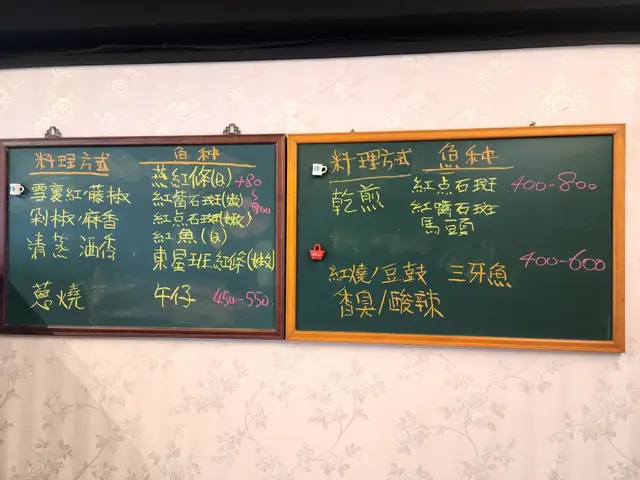 料理方式 魚种
雪裏紅/藤椒 燕紅條(Q) +80
剁椒/麻香 紅螢石斑(嫩)
清蒸 酒香 紅点石斑(嫩)
紅魚(Q)
東星班 紅條(嫩)
蔥燒 午仔 450-550
料理方式 魚种
乾煎 紅点石斑 400-800
紅螢石斑
馬頭
紅燒/豆鼓 三牙魚 400-600
香臭/酸辣